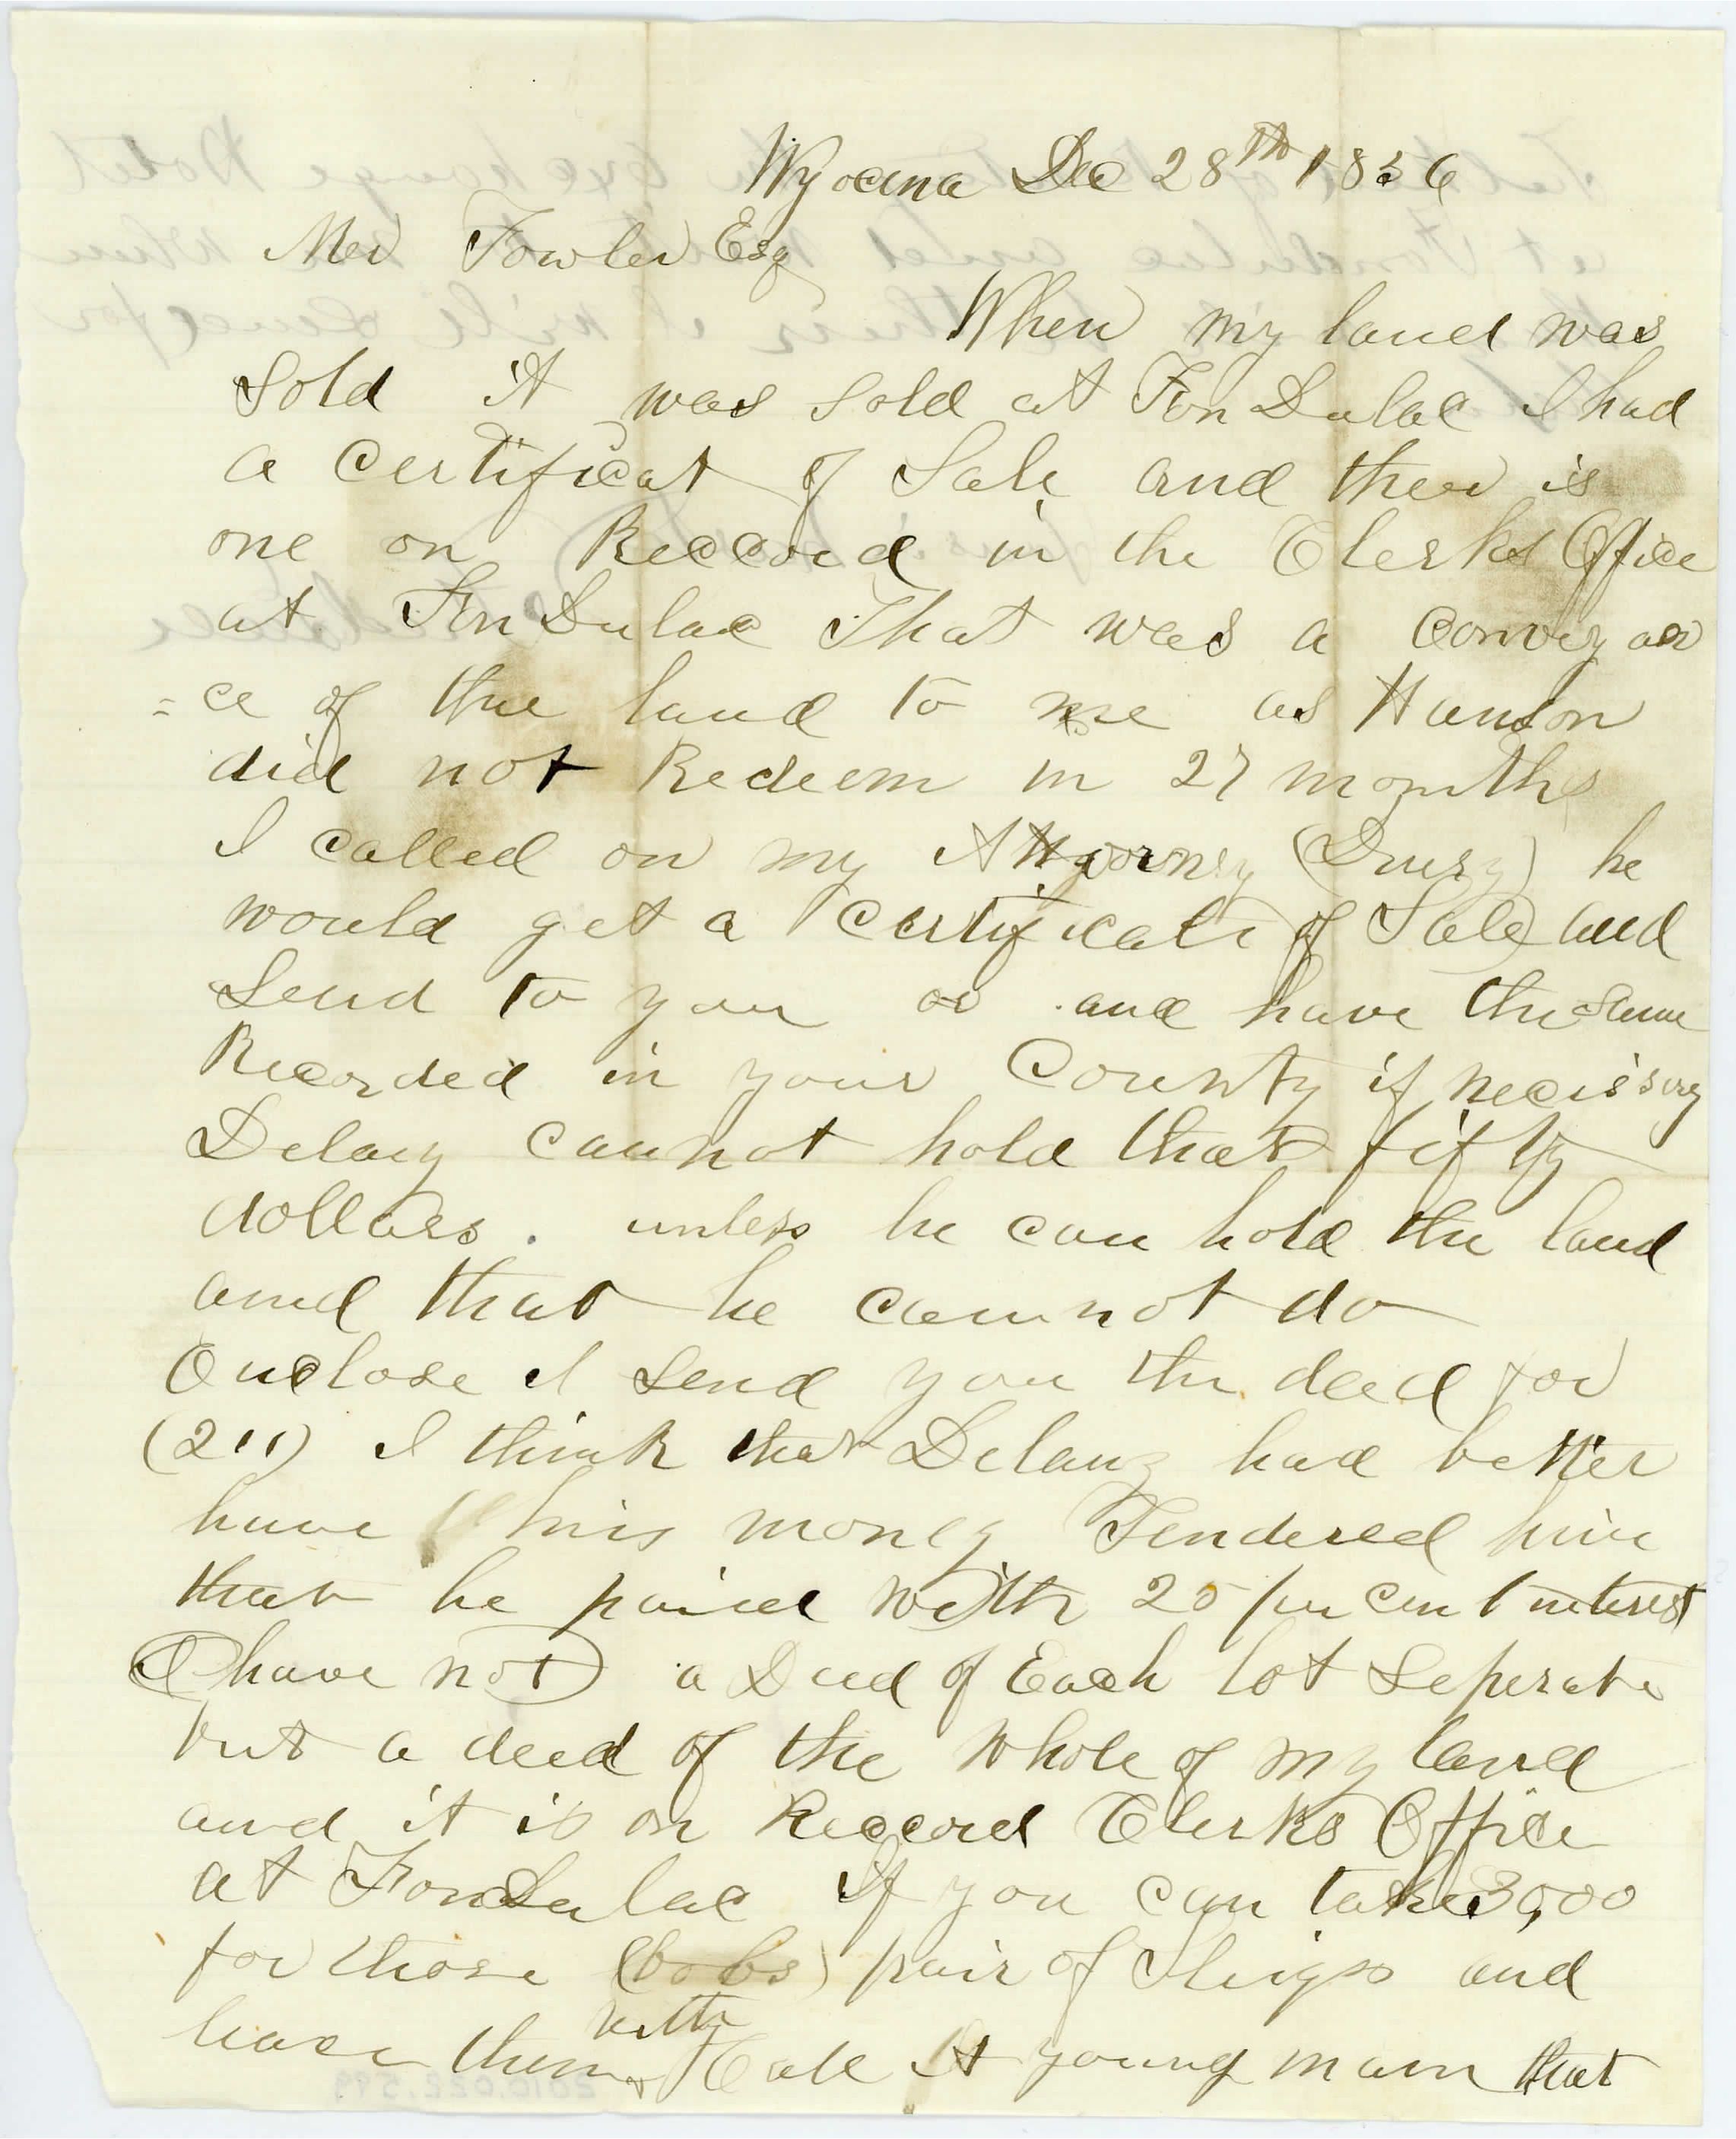 Wyocena Dec 28th 1856
Mr Fowler Esq
When my land was
sold it was sold at Fon Dulac I had
a certificat of Sale and ther is
one on Reccord in the Clerks Office
at Fon Dulac That was a convey an
=ce of the land to me as Hanson
did not Redeem in 27 months
I called on my Attorney (Drury) he
would get a certificate of Sale and
Send to you or and have the same
Recorded in your County if necissary
Delany cannot hold that fifty
dollars. unless he can hold the land
and that he cannot do
Enclose I send you the deed for
(211) I think that Delany had better
have his money Tendered him
that he paid with 25 per cent interest
I have not a Deed of Each lot Seperate
but a deed of the whole of my land
and it is on Reccord Clerks Office
at Fon Dulac If you can take 30,00
for those (bobs) pair of Sleighs and
leave them with Cole A young man that